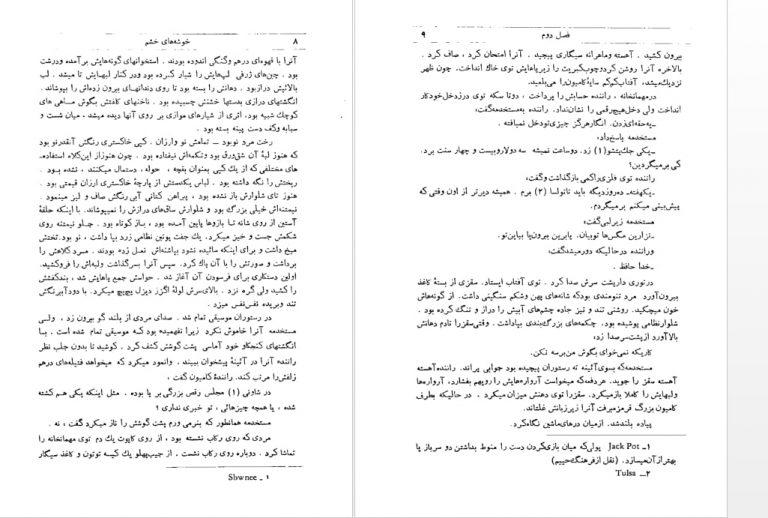 ۸ خوشه‌های خشم
آنرا با قهوه‌ای درهم ورنگی اندوده بودند . استخوانهای گونه‌هایش برآمده ودرشت
بود . چین‌های ژرفی لپ‌هایش را شیار کرده بود ودر کنار لبهایش تا میشد . لب
بالائیش درازبود . دهانش را بسته بود تا روی دندانهای بیرون زده‌اش را بپوشاند .
انگشتهای درازی بدستها خشنش چسبیده بود . ناخنهای کلفتش بگوش ماهی های
کوچك شبیه بود، اثری از شیارهای موازی بر روی آنها دیده میشد ، میان شست و
سبابه وکف دست پینه بسته بود .
رخت مرد نوبود – تمامش نو وارزان . کپی خاکستری رنگش آنقدرنو بود
که هنوز لبهٔ آن شق‌ورق بود وتکمه‌اش نیفتاده بود . چون هنوزاز این‌کلاه استفاده‌
های مختلفی که از یك کپی بعنوان بقچه ، حوله ، دستمال میکنند ، نشده بود .
ریختش را نگه داشته بود . لباس یکدستش از پارچهٔ خاکستری ارزان قیمتی بود .
هنوز تای شلوارش باز نشده بود ، پیراهن کتانی آبی رنگش صاف و لیز مینمود .
نیمتنه‌اش خیلی بزرگ بود و شلوارش ساق‌های درازش را نمیپوشاند. با اینکه حلقهٔ
آستین از روی شانه تا بازوها پایین آمده بود ، باز کوتاه بود . جلو نیمتنه روی
شکمش جست و خیز میکرد. یك جفت پوتین نظامی زرد بپا داشت ، نو بود. تختش
میخ داشت و برای اینکه سائیده نشود بپاشنه‌اش نعل زده بودند . مرد کلاهش را
برداشت و صورتش را با آن پاك کرد. سپس آنرا بسرگذاشت ولبه‌اش را فروکشید.
اولین دستکاری برای فرسودن آن آغاز شد . حواس جمع پاهایش شد ، بندکفشش
را کشید ولی گره نزد . بالای‌سرش لولهٔ اگزز دیزل پیچ‌پچ میکرد. با دودآبیرنگش
تند وبریده نفس‌نفس میزد .
در رستوران موسیقی تمام شد . صدای مردی از بلند گو بیرون زد ، ولی
مستخدمه آنرا خاموش نکرد زیرا نفهمیده بود که موسیقی تمام شده است . با
انگشتهای کنجکاو خود آماسی پشت گوشش کشف کرد . کوشید تا بدون جلب نظر
راننده آنرا در آئینهٔ پیشخوان ببیند . وانمود میکرد که میخواهد فتیله‌های درهم
زلفش‌را مرتب کند. رانندهٔ کامیون گفت ،
در شاونی (۱) مجلس رقص بزرگی بر پا بوده . مثل اینکه یکی هم کشته
شده ، یا همچه چیزهائی ، تو خبری نداری ؟
مستخدمه همانطور که بنرمی ورم پشت گوشش را ناز میکرد گفت ، نه .
مردی که روی رکاب نشسته بود ، از روی کاپوت یك دم توی مهمانخانه را
تماشا کرد . دوباره روی رکاب نشست . از جیب‌پهلو یك کیسه توتون و کاغذ سیگار
۱ ـ Sbwnee
فصل دوم ۹
بیرون کشید. آهسته وماهرانه سیگاری پیچید . آنرا امتحان کرد ، صاف کرد .
بالاخره آنرا روشن کردوچوب‌کبریت را زیرپاهایش توی خاك انداخت، چون ظهر
نزدیك‌میشد، آفتاب‌کم‌کم سایهٔ‌کامیون‌را می‌بلعید.
درمهمانخانه ، راننده حسابش را پرداخت ، دوتا سکه توی درزدخل‌خودکار
انداخت ولی دخل‌هیچ‌رقمی را نشان‌نداد. راننده به‌مستخدمه‌گفت،
ـ یه‌حقه‌ای‌زدن. انگارهرگز چیزی‌توش نمیافته .
مستخدمه پاسخ‌داد،
ـ یکی جك‌پتشو(۱) زد. دوساعت نمیشه سه دولاروبیست و چهار سنت برد.
کی برمیگردین؟
راننده توی فلزی‌راکمی بازگذاشت وگفت،
ـ یکهفته‌ـ‌ده‌روزدیگه باید تاتولسا (۲) برم . همیشه دیرتر از اون وقتی که
پیش‌بینی میکنم برمیگردم.
مستخدمه زیرلبی‌گفت،
ـ نزارین مگس‌ها توبیان. یابرین بیرون‌یا بیاین‌تو.
وراننده درحالیکه دورمیشدگفت،
ـ خدا حافظ .
درتوری دارپشت سرش صدا کرد . توی آفتاب ایستاد. سقزی از بستهٔ کاغذ
بیرون‌آورد مرد تنومندی بودکه شانه‌های پهن وشکم سنگینی داشت. از گونه‌هاش
خون میچکید. روشنی تند و تیز جاده چشم‌های آبیش را دراز و تنگ کرده بود .
شلوارنظامی پوشیده بود، چکمه‌های بزرگ‌بندی بپاداشت . وقتی‌سقزرا تادم دهانش
بالاآورد ازپشت‌سرصدا زد،
کاریکه نمی‌خوای بگوش من‌برسه نکن.
مستخدمه‌که بسوی‌آئینه ته رستوران پیچیده بود جوابی پراند. راننده‌آهسته
آهسته سقز را جوید. هردفعه‌که میخواست آرواره‌هایش را رویهم بفشارد، آرواره‌ها
ولبهایش را کاملا بازمیکرد. سقزرا توی دهنش میزان میکرد . در حالیکه بطرف
کامیون بزرگ قرمزمیرفت آنرا زیرزبانش غلتاند.
پیاده بلندشد. ازمیان درهای‌ماشین نگاه‌کرد.
۱ـ Jack Pot پولی‌که میان بازی‌کردن دست را منوط بداشتن دو سرباز یا
بهتراز آن‌میسازد. (نقل ازفرهنگ‌حییم)
۲ـ Tulsa